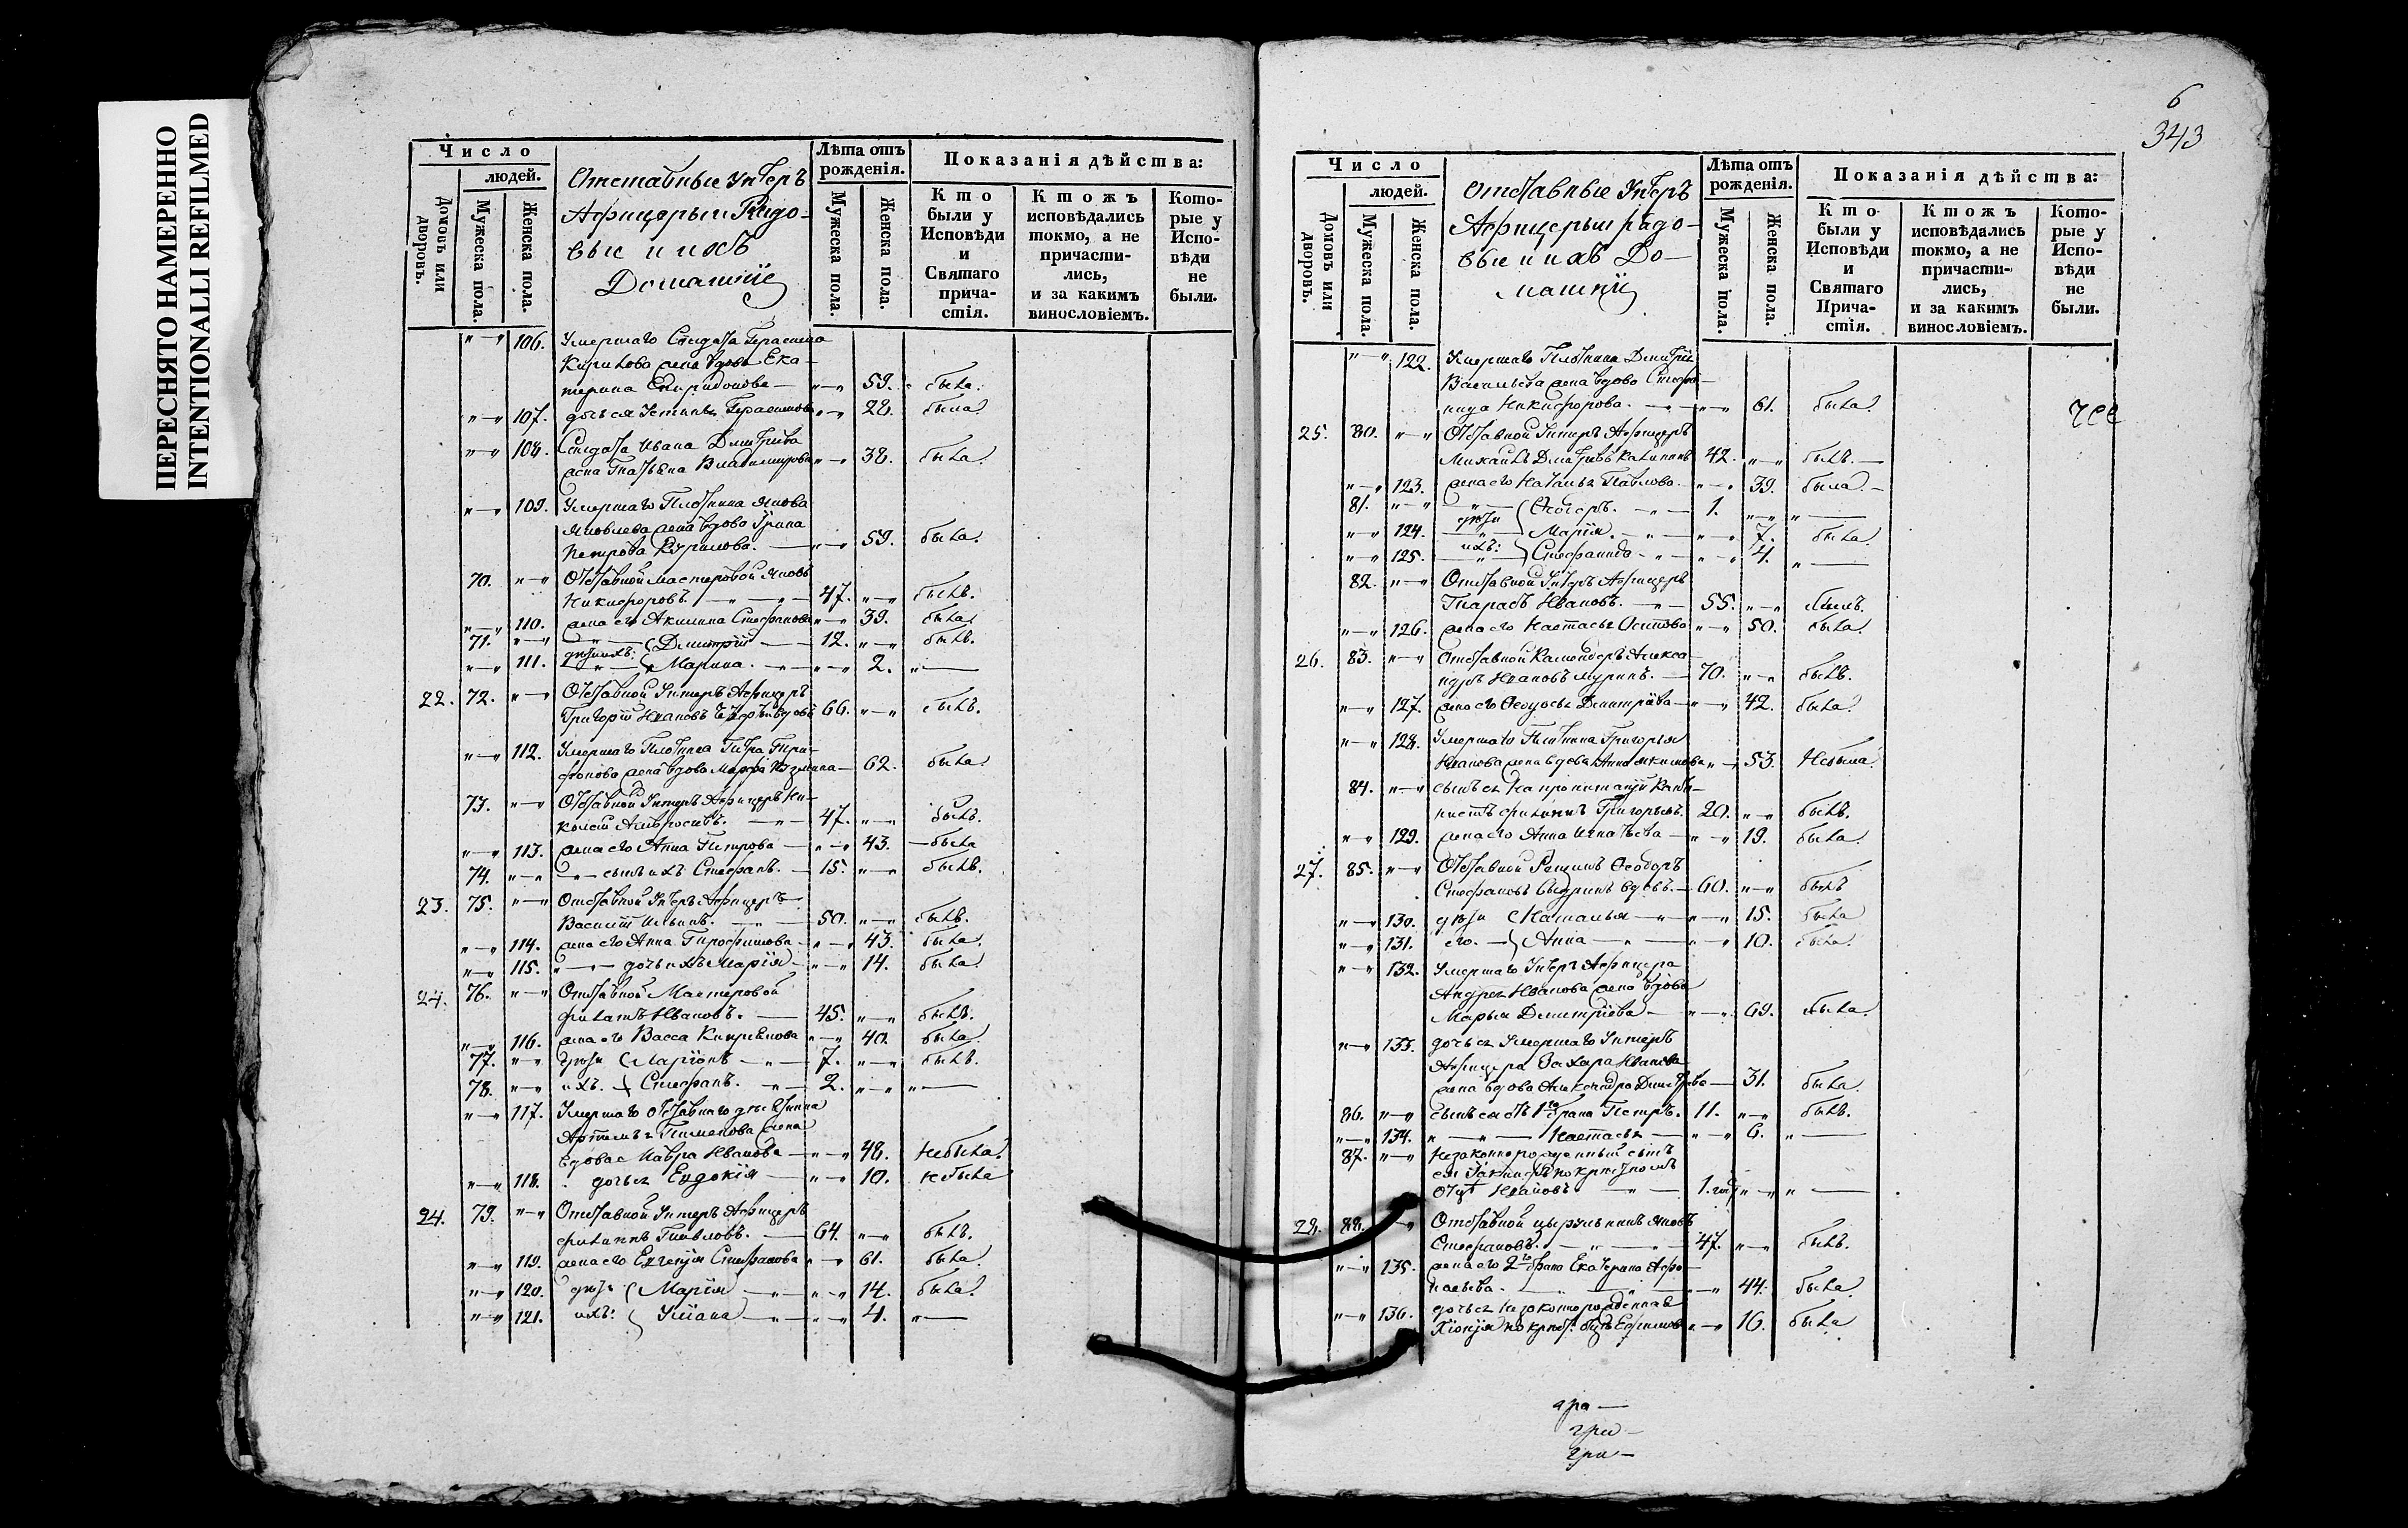 ПЕРЕСНЯТО НАМЕРЕННО
INTENTIONALLI REFILMED
Число
людей.
Домовъ или дворовъ.
Мужеска пола.
Женска пола.
Отставные Унтеръ
Афицеры и Рядо-
вые и ихъ
Домашніе
Лѣта отъ рожденія.
Мужеска пола.
Женска пола.
Показанія дѣйства:
Кто были у Исповѣди и Святаго прича-стія.
Ктожъ исповѣдались токмо, а не причасти-лись, и за какимъ винословіемъ.
Кото-рые у Испо-вѣди не были.
106. Умершаго Солдата Герасима
Кирилова жена вдова Ека-
терина Спиридонова 59. была.
107. дочь ея Устинья Герасимова 28. была.
108. Солдата Ивана Дмитріева
жена Татьяна Владимирова 38. была.
109. Умершаго Плотника Якова
Яковлева жена вдова Ирина
Петрова 59. была.
70. Отставной мастеровой Яковъ
Никифоровъ. 47. былъ.
110. жена его Акилина Стефанова 39. была.
71. Дмитрій 12. былъ.
111. дѣти ихъ: Марина. 2.
22. 72. Отставной Унтеръ Афицеръ
Григорій Ивановъ вдовъ 66. былъ.
112. Умершаго Плотника Петра
жена вдова Марфа Кузмина 62. была.
73. Отставной Унтеръ Афицеръ Ни-
колай Амвросіевъ. 47. былъ.
113. жена его Анна Петрова 43. была
74. сынъ ихъ Стефанъ. 15. былъ.
23. 75. Отставной Унтеръ Афицеръ
Василій Ильинъ. 50. былъ.
114. жена его Анна Трофимова 43. была.
115. дочь ихъ Марія 14. была.
24. 76. Отставной Мастеровой
Филатъ Ивановъ. 45. былъ.
116. жена его Васса Кипріянова 40. была.
77. дѣти Ларіонъ 7. былъ.
78. ихъ. Стефанъ. 2.
117. Умершаго отставнаго
жена
вдова Ивановa 48. не была.
118. дочь ея Евдокія 10. не была
24. 79. Отставной Унтеръ Афицеръ
Филиппъ Павловъ. 64. былъ.
119. жена его Евгенія Стефанова 61. была.
120. дѣти Марія 14. была.
121. ихъ: Уліана 4.
6
343
Число
людей.
Домовъ или дворовъ.
Мужеска пола.
Женска пола.
Отставные Унтеръ
Афицеры и рядо-
вые и ихъ До-
машніи
Лѣта отъ рожденія.
Мужеска пола.
Женска пола.
Показанія дѣйства:
Кто были у Исповѣди и Святаго Прича-стія.
Ктожъ исповѣдались токмо, а не причасти-лись, и за какимъ винословіемъ.
Кото-рые у Испо-вѣди не были.
122. Умершаго Плотника Дмитрія
Васильева жена вдова Стефа-
нида Никифорова. 61. была.
25. 80. Отставной Унтеръ Афицеръ
Михаилъ Дмитріевъ Калининъ 42. былъ.
123. жена его Наталья Павлова 39. была.
81. Ѳеодоръ. 1.
124. дѣти Марія. 7. была.
125. ихъ: Стефанида 4.
82. Отставной Унтеръ Афицеръ
Тарасъ Ивановъ. 55. былъ.
126. жена его Настасья Осипова 50. была.
26. 83. Отставной Алекса-
ндръ Ивановъ 70. былъ.
127. жена его Ѳедосья Дмитріева 42. была.
128. Умершаго Плотника Григорья
Иванова жена вдова Анна 53. Не была.
84. сынъ ея на пропитаніи
Филиппъ Григорьевъ. 20. былъ.
129. жена его Анна Игнатьева 19. была.
27. 85. Отставной Ѳеодоръ
Стефановъ вдовъ. 60. былъ
130. дѣти Наталья 15. была
131. его. Анна 10. была.
132. Умершаго Унтеръ Афицера
Андрея Иванова жена вдова
Марья Дмитріева 69. была.
133. дочь ея Умершаго Унтеръ
Афицера Захара Иванова
жена вдова Александра Дмитріева 31. была.
86. сынъ ея отъ 1го брака Петръ. 11. былъ.
134. Настасья 6.
87. Незаконнорожденный сынъ
ея по крестномъ
отцѣ Ивановъ 1.
28. 88. Отставной цырульникъ Яковъ
Стефановъ. 47. былъ.
135. жена его 2го брака Екатерина Афо-
насьева. 44. была.
136. дочь ея незаконорожденная
Хіонія по крест. отцѣ Ефимова 16. была